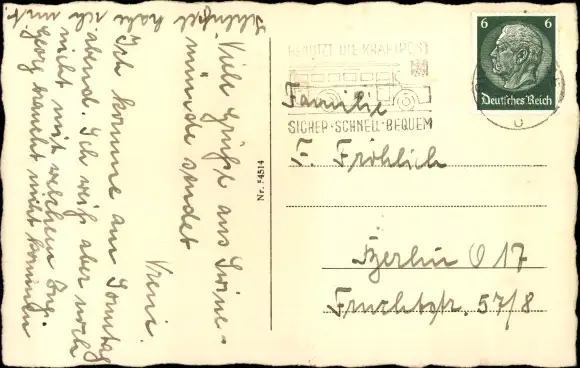 Viele Grüße aus Swine-
münde sendet
Vreni.
Ich komme am Sonntag
abend. Ich weiß aber noch
nicht mit welchem Zug.
Georg braucht nicht kommen
Schlüssel habe ich mit
Nr. 54514
BENUTZT DIE KRAFTPOST
SICHER-SCHNELL-BEQUEM
6 6
Deutsches Reich
Familie
F. Fröhlich
Berlin O 17
Fruchtstr. 57/8